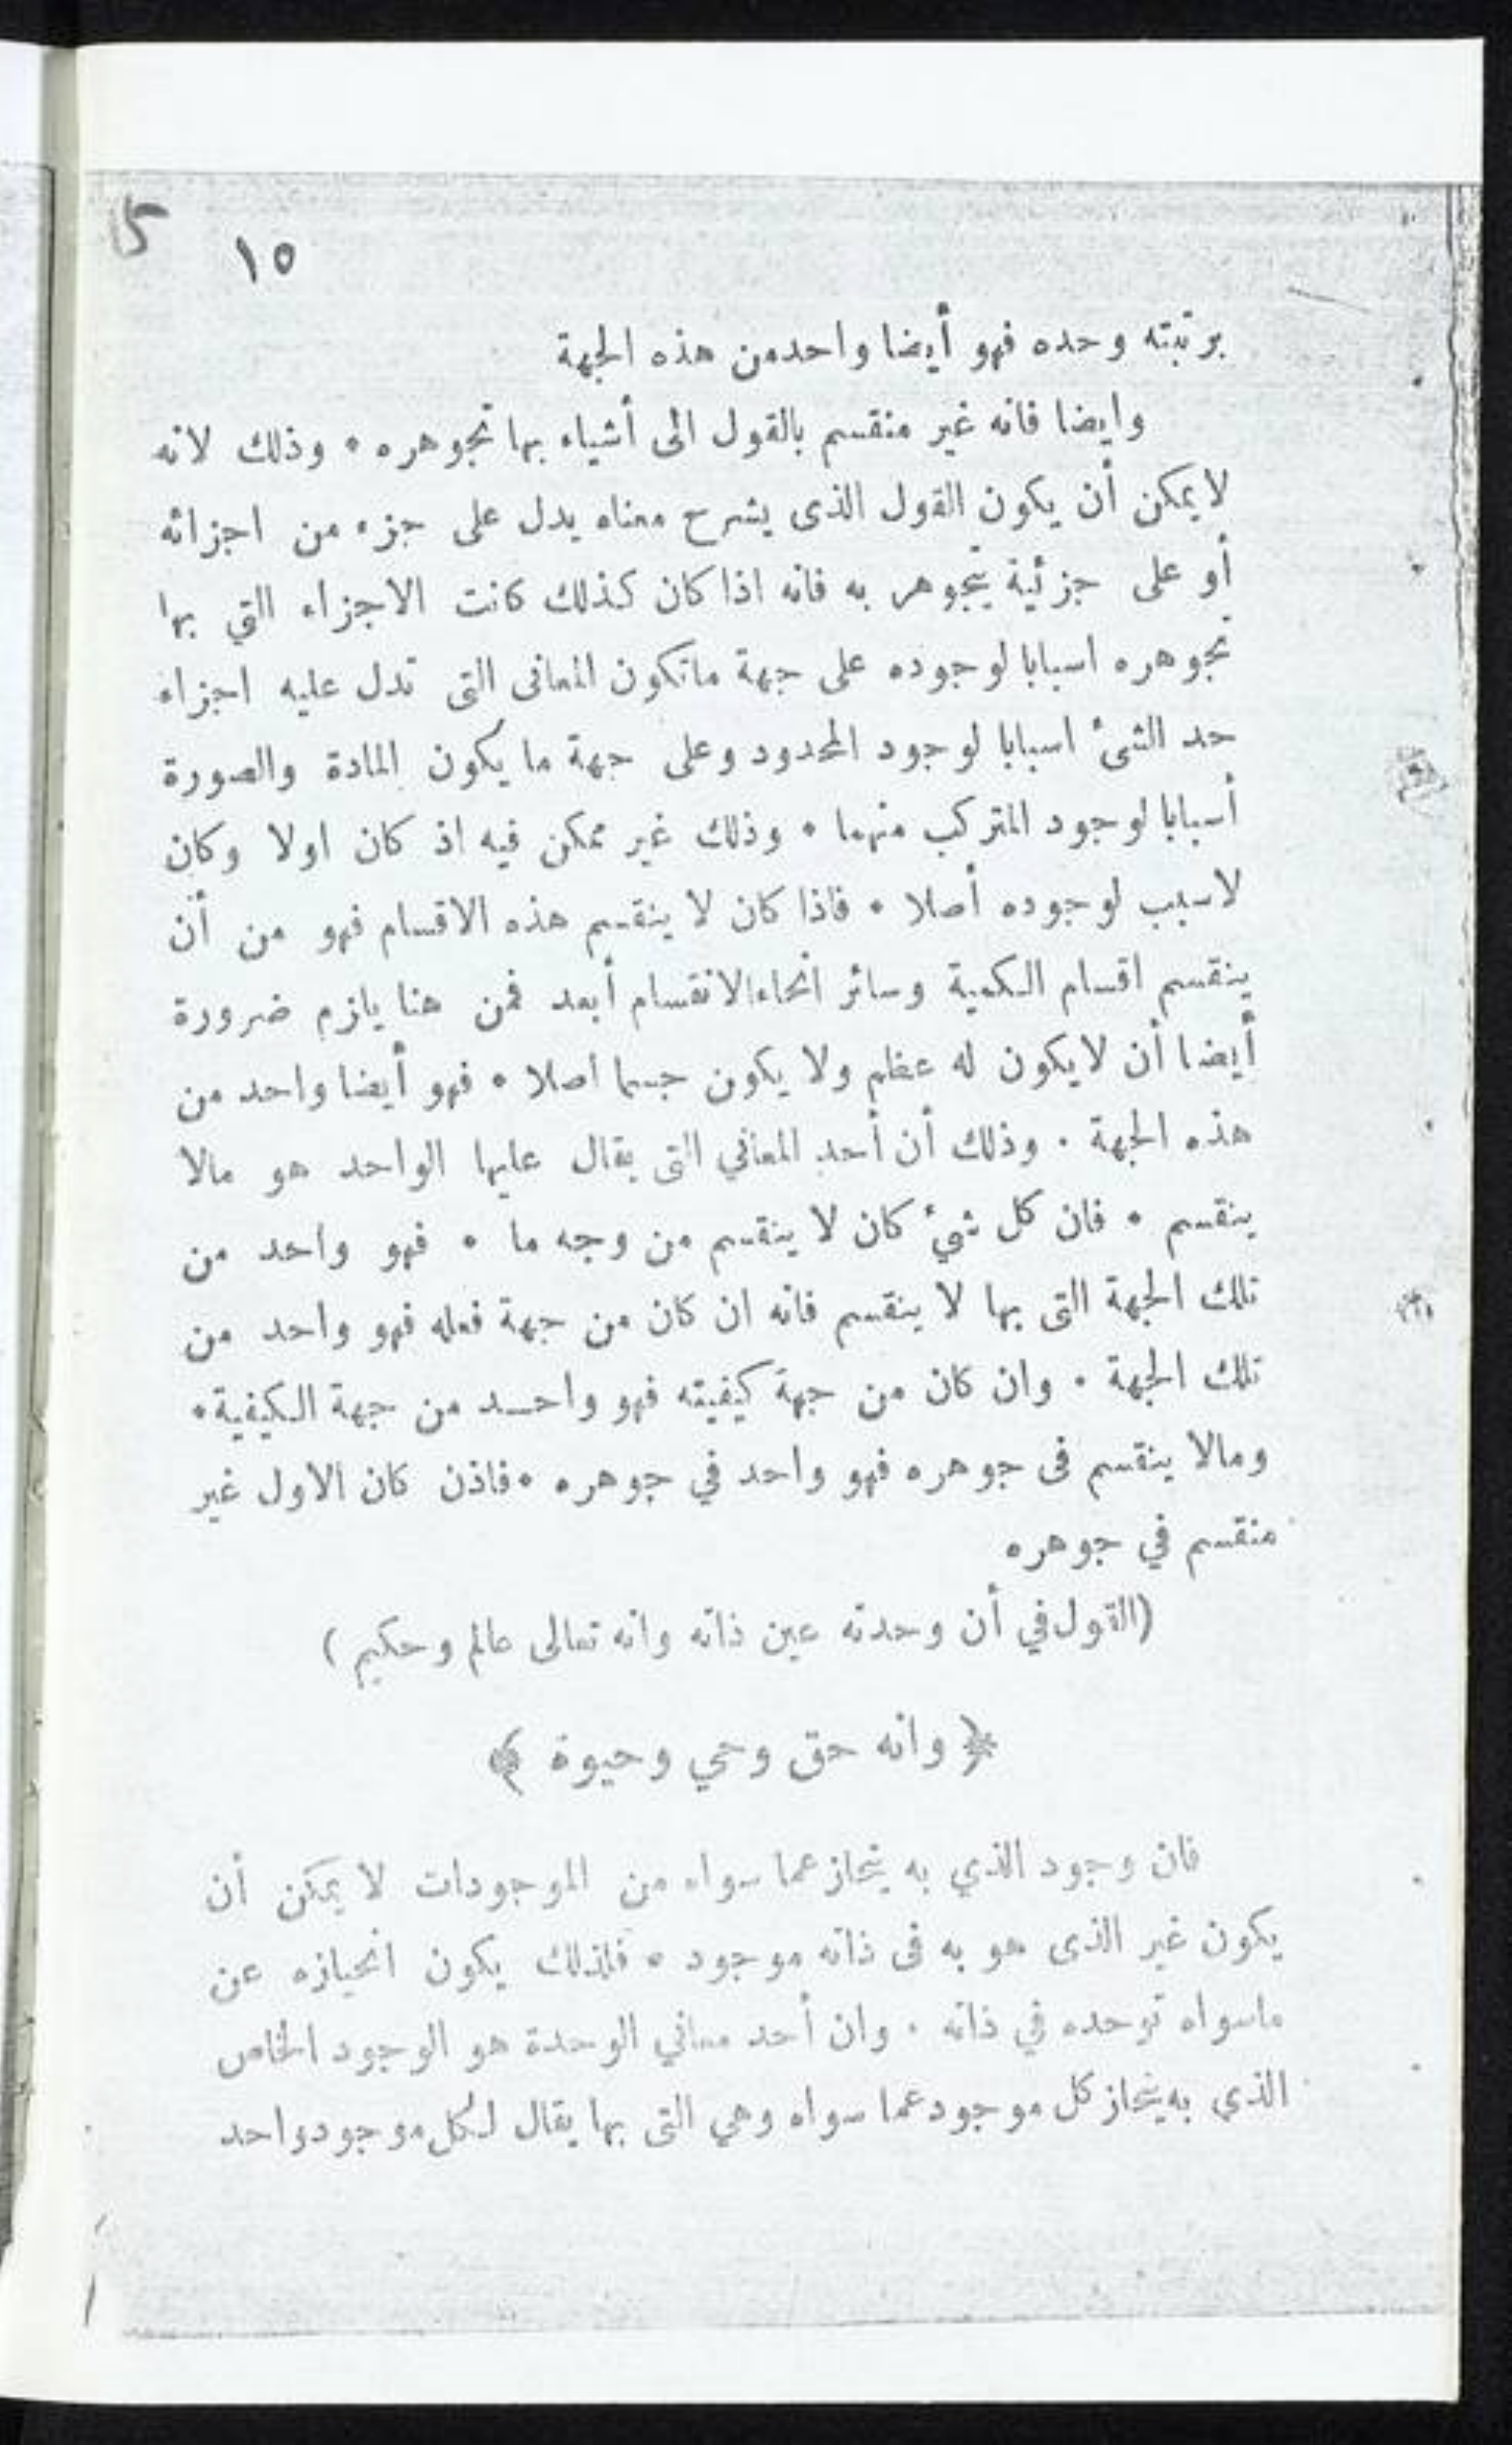 ١٥
برتبته وحده فهو أيضا واحد من هذه الجهة
وايضا فانه غير منقسم بالقول الى أشياء بها تجوهره • وذلك لانه
لا يمكن أن يكون القول الذى يشرح معناه يدل على جزء من اجزائه
أو على جزئية يتجوهر به فانه اذا كان كذلك كانت الاجزاء التي بها
تجوهره اسبابا لوجوده على جهة ماتكون المعانى التى تدل عليه اجزاء
حد الشئ اسبابا لوجود المحدود وعلى جهة ما يكون المادة والصورة
أسبابا لوجود المتركب منهما • وذلك غير ممكن فيه اذ كان اولا وكان
لاسبب لوجوده أصلا • فاذا كان لا ينقسم هذه الاقسام فهو من أن
ينقسم اقسام الكمية وسائر انحاء الانقسام أبعد فمن هنا يلزم ضرورة
أيضا أن لايكون له عظم ولا يكون جسما اصلا • فهو أيضا واحد من
هذه الجهة • وذلك أن أحد المعاني التى يقال عليها الواحد هو مالا
ينقسم • فان كل شيء كان لا ينقسم من وجه ما • فهو واحد من
تلك الجهة التى بها لا ينقسم فانه ان كان من جهة فعله فهو واحد من
تلك الجهة • وان كان من جهة كيفيته فهو واحد من جهة الكيفية •
ومالا ينقسم فى جوهره فهو واحد في جوهره • فاذن كان الاول غير
منقسم في جوهره
(القول في أن وحدته عين ذاته وانه تعالى عالم وحكيم)
﴿ وانه حق وحي وحيوة ﴾
فان وجود الذي به ينحاز عما سواه من الموجودات لا يمكن أن
يكون غير الذى هو به فى ذاته موجود • فلذلك يكون انحيازه عن
ماسواه توحده في ذاته • وان أحد معاني الوحدة هو الوجود الخاص
الذي به ينحاز كل موجود عما سواه وهي التى بها يقال لكل موجود واحد